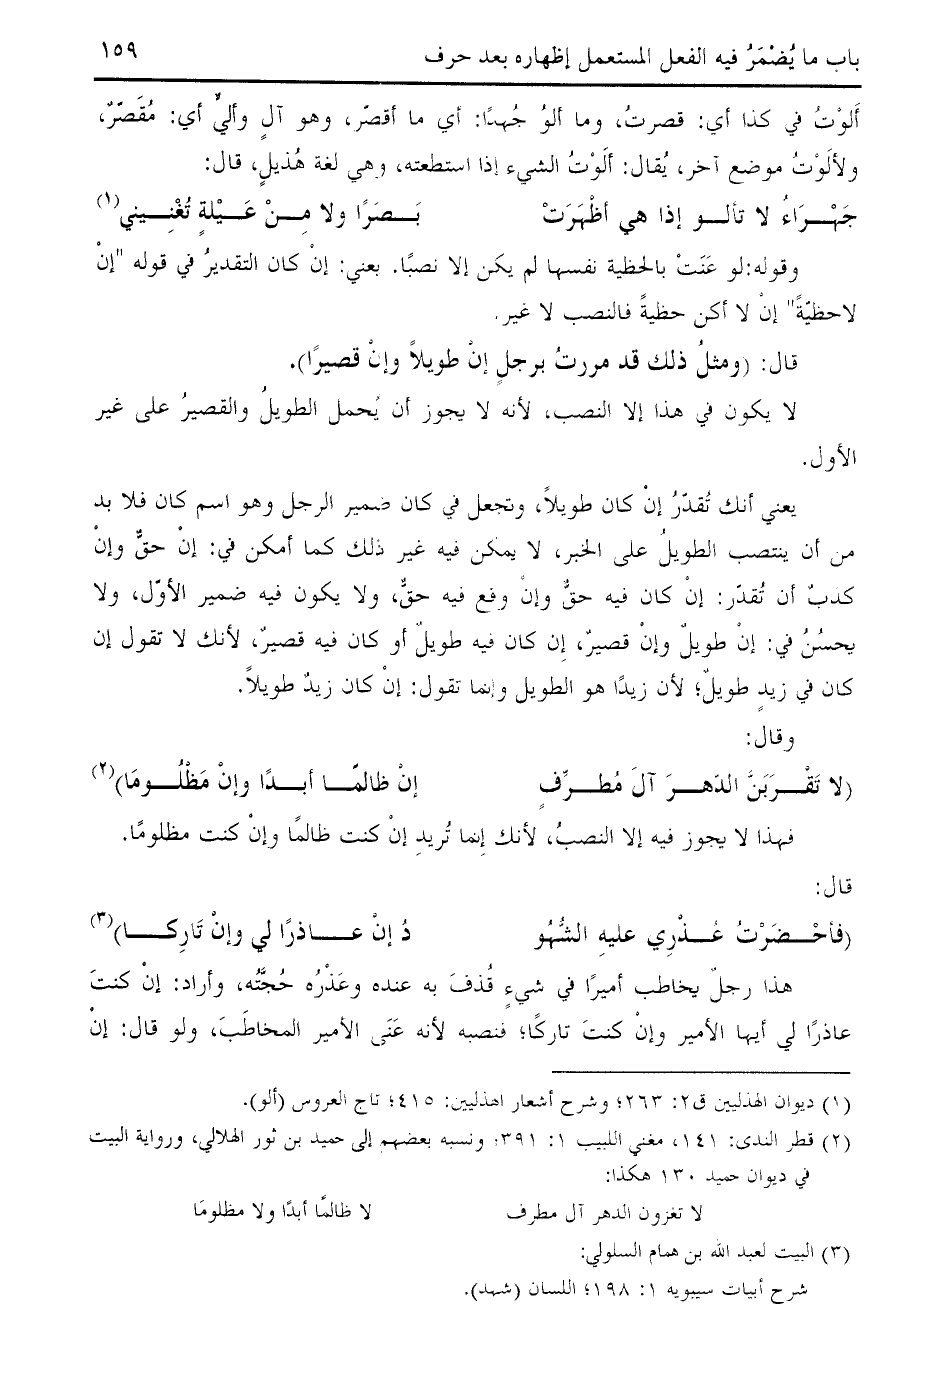 باب ما يُضْمَرُ فيه الفعل المستعمل إظهاره بعد حرف ١٥٩
أَلوْتُ في كذا أي: قصرت، وما ألوُ جُهدًا: أي ما أقصّر، وهو آلٍ وأليٌّ أي: مُقَصّرٌ،
ولألَوْتُ موضع آخر، يُقال: ألَوْتُ الشيء إذا استطعته، وهي لغة هُذيلٍ، قال:
جَهْـرَاءُ لا تألـو إذا هي أظْهَرَتْ بَـصَرًا ولا مِـنْ عَـيْلةٍ تُغْـنِـيني(١)
وقوله:لو عَنَتْ بالحظية نفسها لم يكن إلا نصبًا. بعني: إنْ كان التقديرُ في قوله "إنْ
لاحظيّةً" إنْ لا أكن حظيةً فالنصب لا غير.
قال: (ومثلُ ذلك قد مررتُ برجلٍ إنْ طويلاً وإنْ قصيرًا).
لا يكون في هذا إلا النصب، لأنه لا يجوز أن يُحمل الطويلُ والقصيرُ على غير
الأول.
يعني أنك تُقدّرُ إنْ كان طويلاً، وتجعل في كان ضمير الرجل وهو اسم كان فلا بد
من أن ينتصب الطويلُ على الخبر، لا يمكن فيه غير ذلك كما أمكن في: إنْ حقٌّ وإنْ
كذبٌ أن تُقدّر: إنْ كان فيه حقٌّ وإنْ وقع فيه حقٌّ، ولا يكون فيه ضمير الأوّل، ولا
يحسُنُ في: إنْ طويلٌ وإنْ قصيرٌ، إن كان فيه طويلٌ أو كان فيه قصيرٌ، لأنك لا تقول إن
كان في زيدٍ طويلٌ؛ لأن زيدًا هو الطويل وإنما تقول: إنْ كان زيدٌ طويلاً.
وقال:
(لا تَقْـرَبَنَّ الدّهـرَ آلَ مُطـرِّفٍ إنْ ظالمًـا أبـدًا وإنْ مَظْلُـومَا)(٢)
فهذا لا يجوز فيه إلا النصبُ، لأنك إنما تُريد إنْ كنت ظالمًا وإنْ كنت مظلومًا.
قال:
(فأحْـضَرْتُ عُـذْرِي عليهِ الشُّهُو دُ إنْ عـاذرًا لي وإنْ تَارِكـا)(٣)
هذا رجلٌ يخاطب أميرًا في شيءٍ قُذفَ به عنده وعَذْرُه حُجَّتُه، وأراد: إنْ كنتَ
عاذرًا لي أيها الأمير وإنْ كنتَ تاركًا؛ فنصبه لأنه عَنَى الأمير المخاطَبَ، ولو قال: إنْ
(١) ديوان الهذليين ق٢: ٢٦٣؛ وشرح أشعار اهذليين: ٤١٥؛ تاج العروس (ألو).
(٢) قطر الندى: ١٤١، مغني اللبيب ١: ٣٩١؛ ونسبه بعضهم إلى حميد بن ثور الهلالي، ورواية البيت
في ديوان حميد ١٣٠ هكذا:
لا تغزون الدهر آل مطرف لا ظالمًا أبدًا ولا مظلومَا
(٣) البيت لعبد الله بن همام السلولي:
شرح أبيات سيبويه ١: ١٩٨؛ اللسان (شهد).